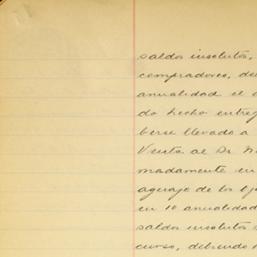 saldos insolutos,
compradores, de
anualidad el
do hecho entreg
berse llevado a
Venta al Dr.
madamente en
aguaje de los
en 10 anualidad
saldos insolutos
curso, debiendo